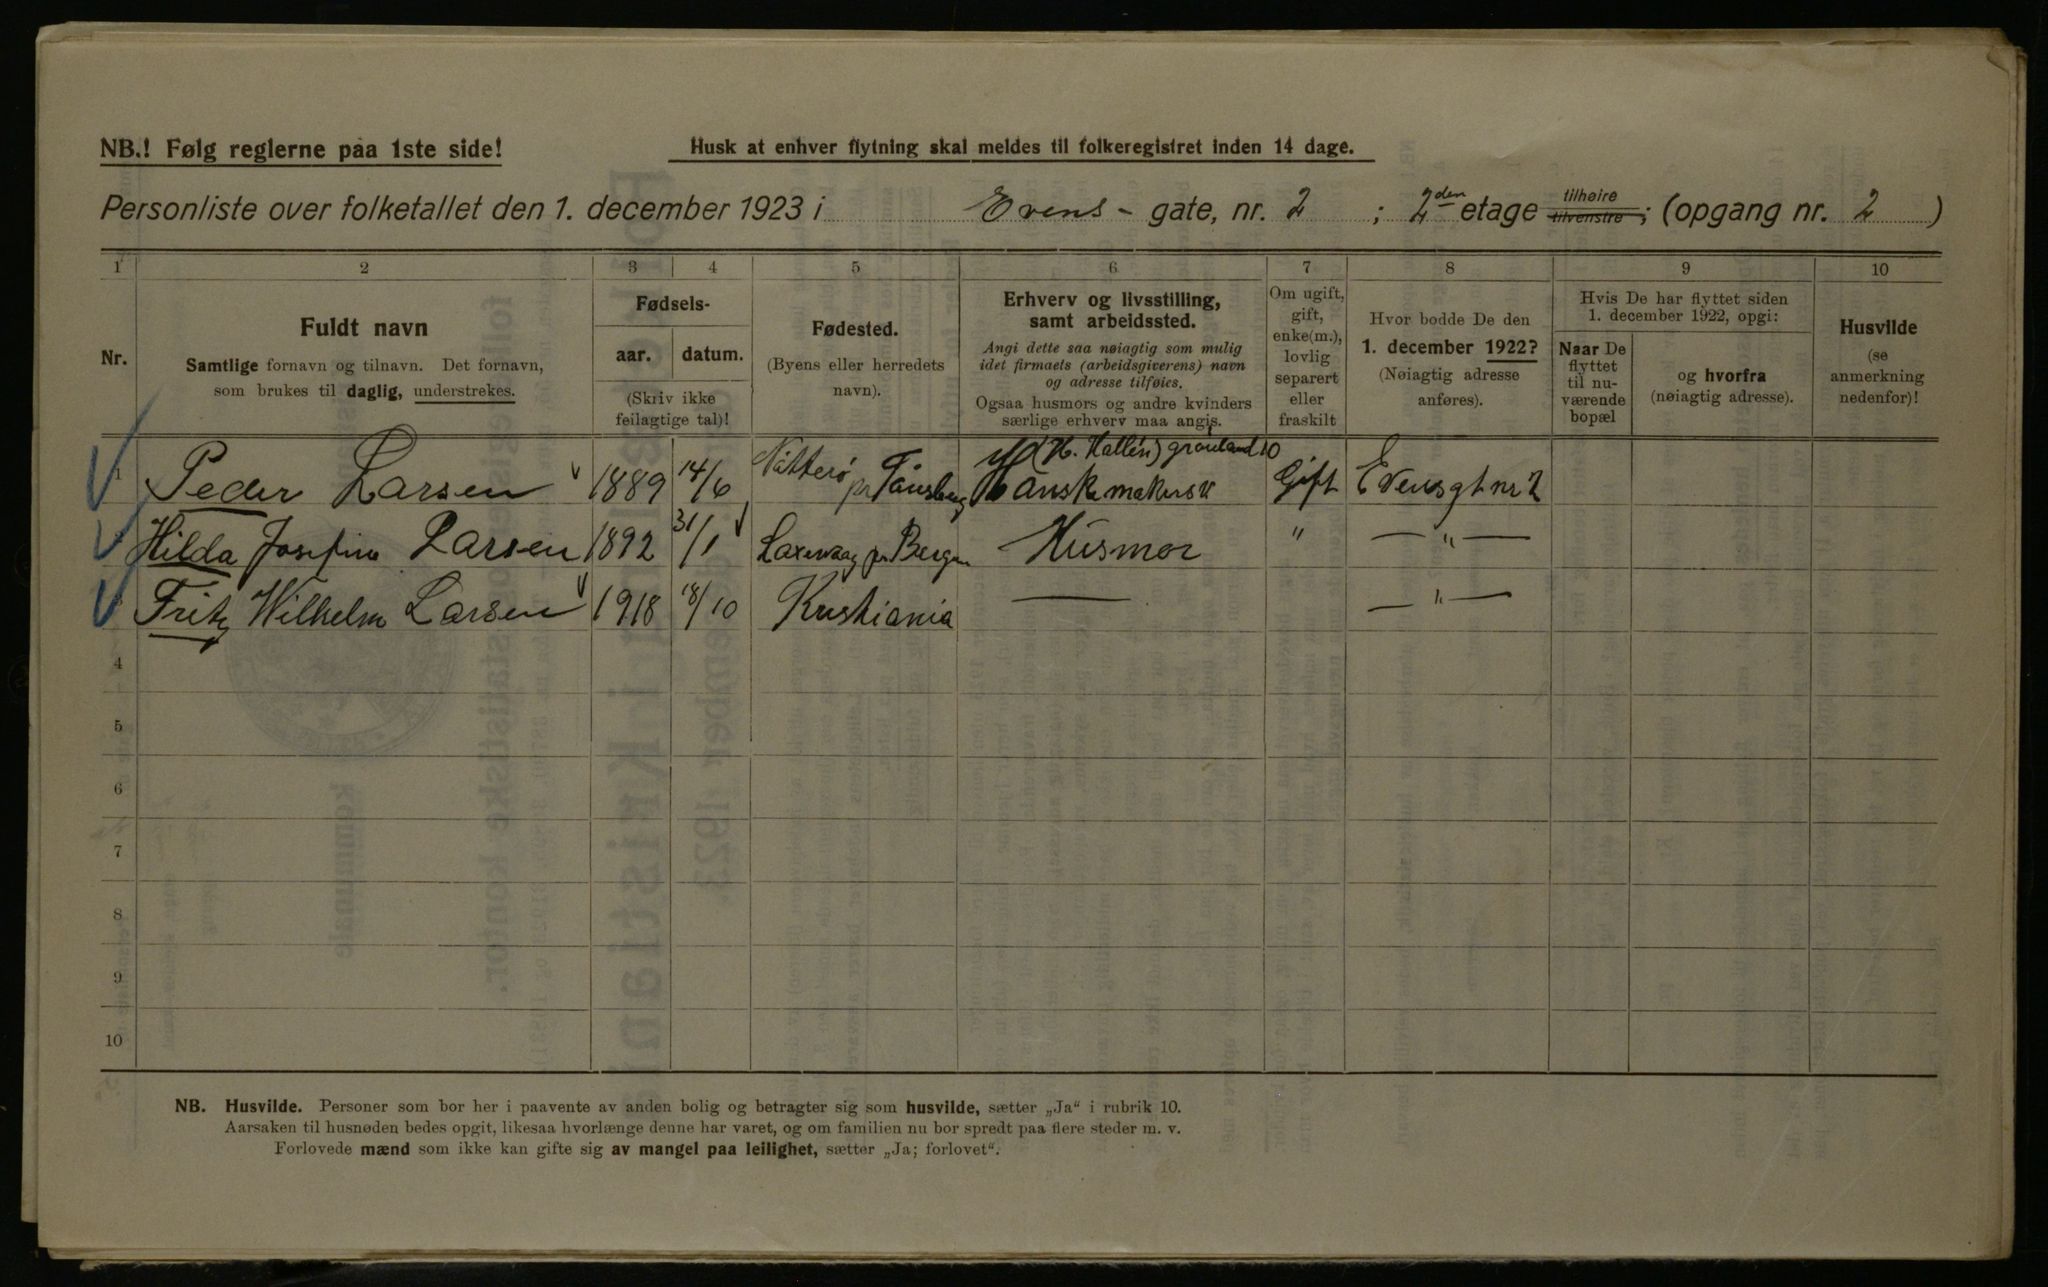 NB.! Følg reglerne paa 1ste side!
Husk at enhver flytning skal meldes til folkeregistret inden 14 dage.
Personliste over folketallet den 1. december 1923 i Evens - gate, nr. 2 ; 2den etage tilhøire tilvenstre; (opgang nr. 2 )
1 2 3 4 5 6 7 8 9 10
Nr.
Fuldt navn
Samtlige fornavn og tilnavn. Det fornavn,
som brukes til daglig, understrekes.
Fødsels-
aar. datum.
(Skriv ikke
feilagtige tal)!
Fødested.
(Byens eller herredets
navn).
Erhverv og livsstilling,
samt arbeidssted.
Angi dette saa nøiagtig som mulig
idet firmaets (arbeidsgiverens) navn
og adresse tilføies.
Ogsaa husmors og andre kvinders
særlige erhverv maa angis.
Om ugift,
gift,
enke(m.),
lovlig
separert
eller
fraskilt
Hvor bodde De den
1. december 1922?
(Nøiagtig adresse
anføres).
Hvis De har flyttet siden
1. december 1922, opgi:
Naar De
flyttet
til nu-
værende
bopæl
og hvorfra
(nøiagtig adresse).
Husvilde
(se
anmerkning
nedenfor)!
(H. Hallén) grønland 10
Peder Larsen 1889 14/6 Nøtterø pr Tønsberg Hanskemakersv Gift Evensgt nr 2
Hilda Josefine Larsen 1892 31/1 Laxevaag pr Bergen Husmor " — " —
Fritz Wilhelm Larsen 1918 18/10 Kristiania — — " —
4
5
6
7
8
9
10
NB. Husvilde. Personer som bor her i paavente av anden bolig og betragter sig som husvilde, sætter „Ja“ i rubrik 10.
Aarsaken til husnøden bedes opgit, likesaa hvorlænge denne har varet, og om familien nu bor spredt paa flere steder m. v.
Forlovede mænd som ikke kan gifte sig av mangel paa leilighet, sætter „Ja; forlovet“.